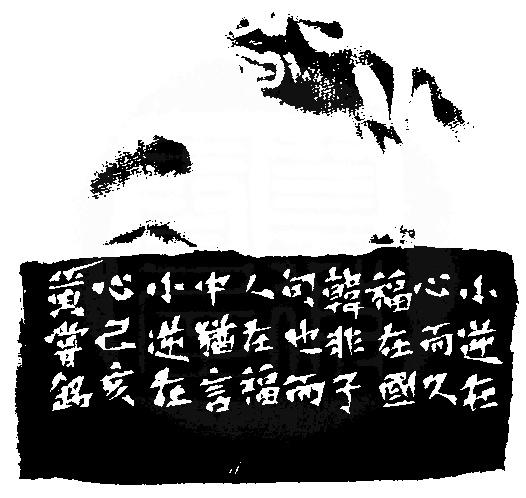 小逆在
心而久
福在國
韓非子
句也而
人在福
中猶言
小逆在
心己亥
黃嘗銘